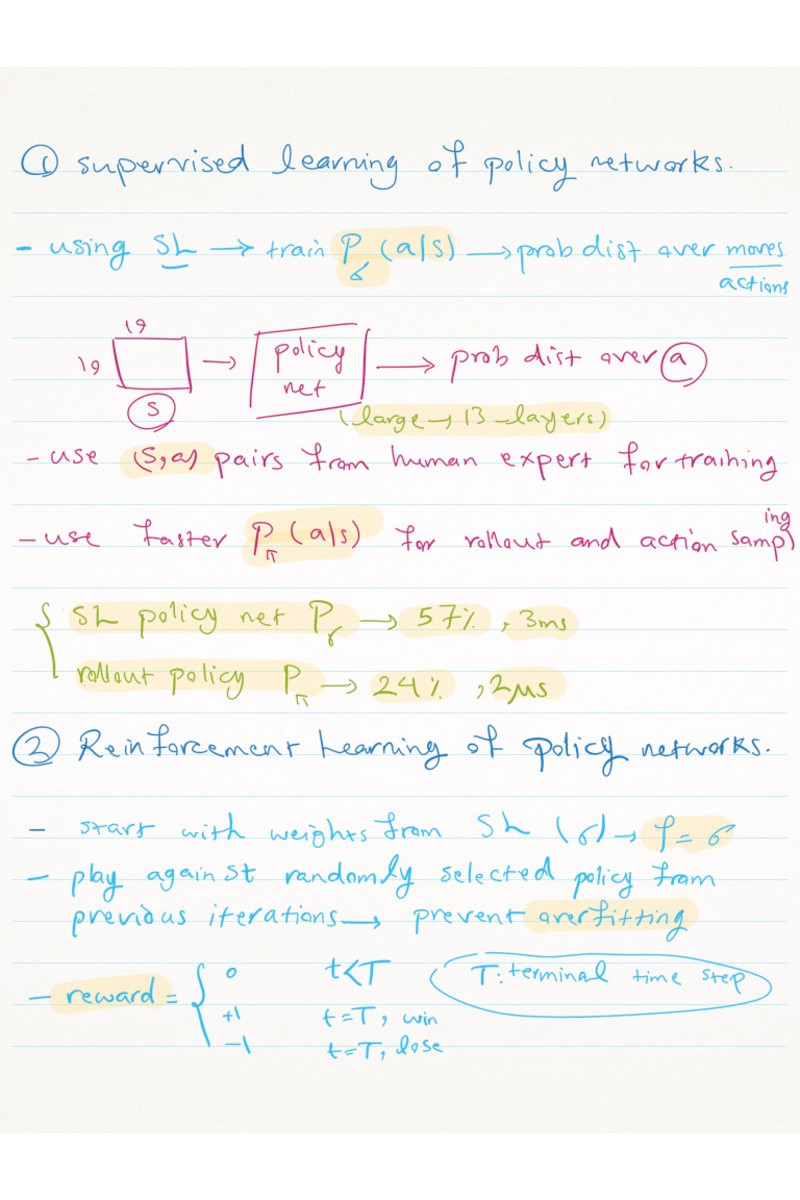 ① supervised learning of policy networks.
- using SL → train P_σ (a|s) → prob dist over moves
actions
19
19 → policy net → prob dist over ⓐ
Ⓢ
(large → 13 - layers)
- use (s,a) pairs from human expert for training
- use faster P_π (a|s) for rollout and action sampling
{ SL policy net P_σ → 57%, 3ms
rollout policy P_π → 24%, 2μs
② Reinforcement Learning of policy networks.
- start with weights from SL (σ) → ρ = σ
- play against randomly selected policy from
previous iterations → prevent overfitting
- reward = { 0 t<T (T: terminal time step)
+1 t=T, win
-1 t=T, lose